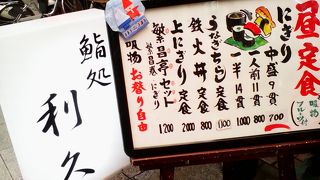 昼定食
にぎり
中盛 9貫 700
一人前 11貫 800
一半 14貫 1000
うなぎちらし定食 1300
鉄火丼 定食 800
上にぎり 定食 2000
繁昌亭セット 1200
繁昌巻 にぎり
吸物 お替り自由
鮨処
利久